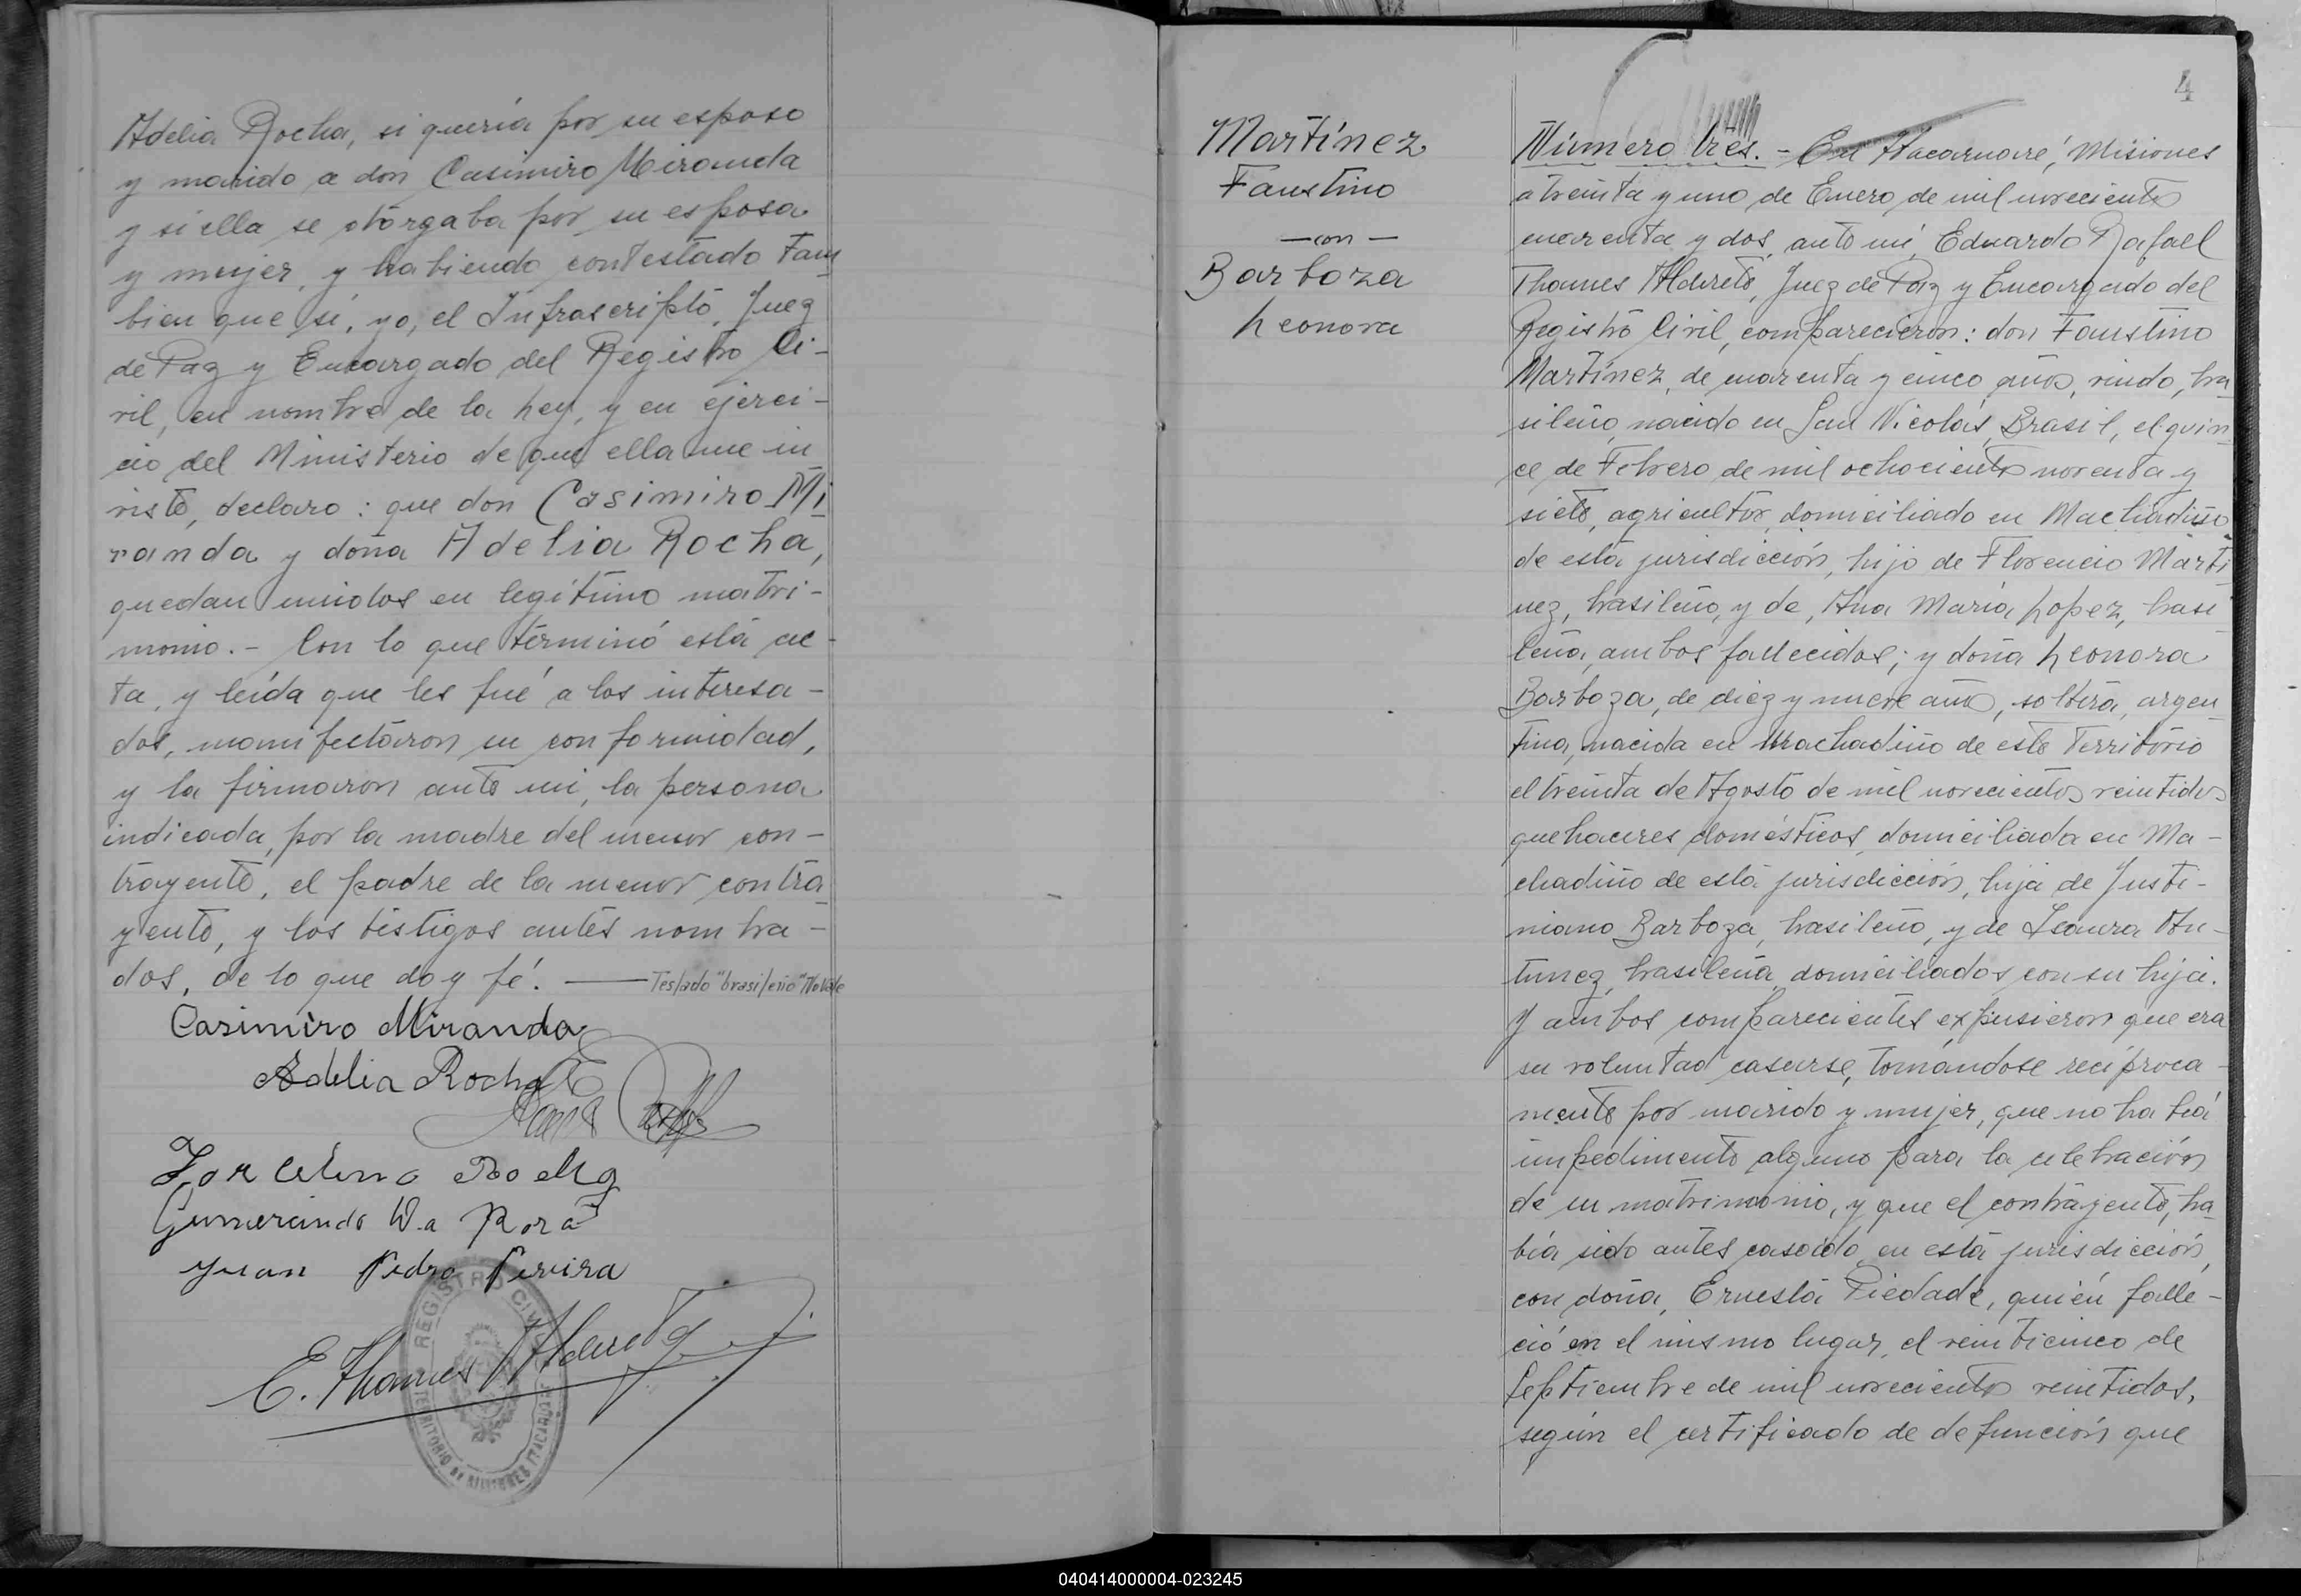 Adelia Rocha, si quería por su esposo
y marido a don Casimiro Miranda
y si ella se otorgaba por su esposa
y mujer, y habiendo contestado tam
bien que sí, yo, el Infrascripto, Juez
de Paz y Encargado del Registro Ci-
vil, en nombre de la Ley, y en ejerci-
cio del Ministerio de que ella me in
viste, declaro: que don Casimiro Mi
randa y doña Adelia Rocha,
quedan unidos en legítimo matri-
monio.- Con lo que terminó esta ac-
ta, y leída que les fué a los interesa-
dos, manifestaron su conformidad,
y la firmaron ante mi, la persona
indicada, por la madre del menor con-
trayente, el padre de la menor contra
yente, y los testigos antes nombra-
dos, de lo que doy fé. — Testado "brasileño" No Vale
Casimiro Miranda
Adelia Rocha
Gumercindo
Juan Pedro Pereira
E. Thames Alderete
REGISTRO CIVIL
TERRITORIO DE MISIONES ITACARUARE
4
Martínez
Faustino
— con —
Barboza
Leonora
Número tres.- En Itacaruaré, Misiones
a treinta y uno de Enero de mil novecientos
cuarenta y dos, ante mi, Eduardo Rafael
Thames Alderete, Juez de Paz y Encargado del
Registro Civil, comparecieron: don Faustino
Martínez, de cuarenta y cinco años, viudo, bra
sileño, nacido en San Nicolás, Brasil, el quin
ce de Febrero de mil ochocientos noventa y
siete, agricultor, domiciliado en Machadiño
de esta jurisdicción, hijo de Florencio Martí
nez, brasileño, y de, Ana María Lopez, brasi
leña, ambos fallecidos; y doña Leonora
Barboza, de diez y nueve años, soltera, argen
tina, nacida en Machadiño de este Territorio
el treinta de Agosto de mil novecientos veintidos
quehaceres domésticos, domiciliada en Ma-
chadiño de esta jurisdicción, hija de Justi-
niano Barboza, brasileño, y de Isaura An-
tunez, brasileña, domiciliados con su hija.
Y ambos comparecientes expusieron que era
su voluntad casarse, tomándose recíproca-
mente por marido y mujer, que no había
impedimento alguno para la celebración
de su matrimonio, y que el contrayente, ha
bía sido antes casado en esta jurisdicción,
con doña, Ernesta Piedade, quién falle-
ció en el mismo lugar, el veinticinco de
Septiembre de mil novecientos veintidos,
según el certificado de defunción que
040414000004-023245